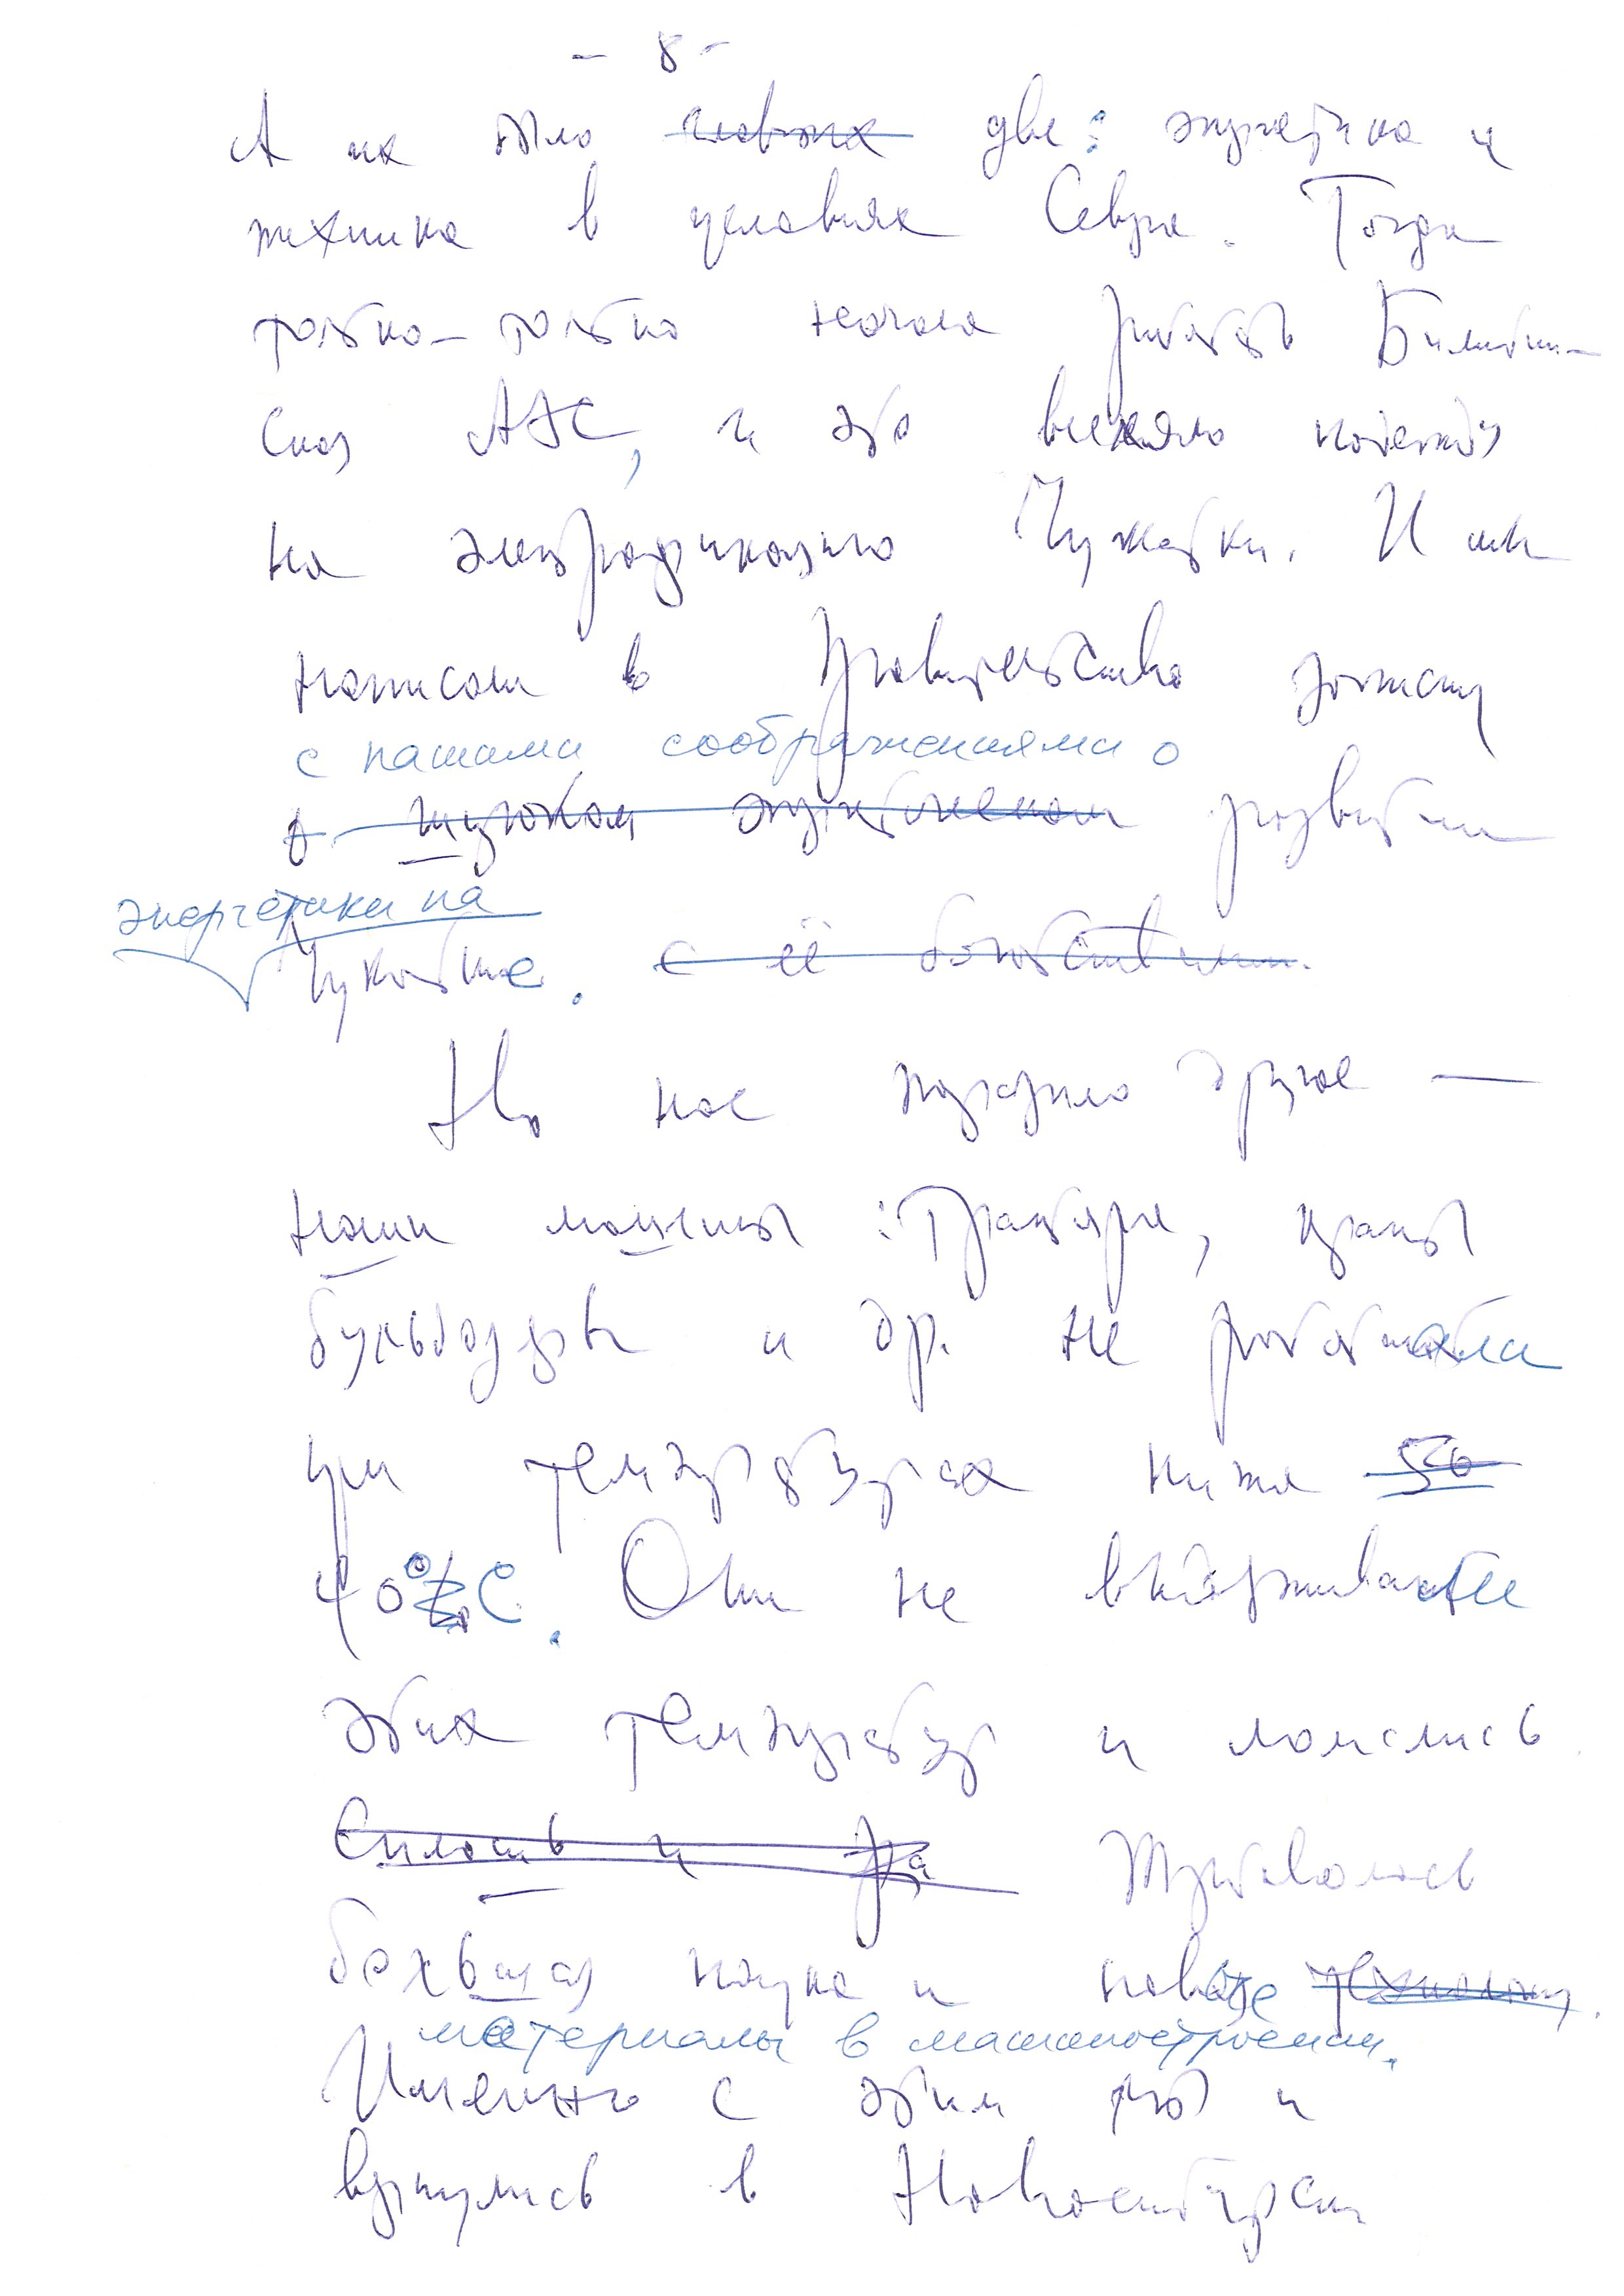 - 8 -
А их было главных две: энергетика и
техника в условиях Севера. Тогда
только-только начала работать Билибин-
ская АЭС, и это вселяло надежду
на электрификацию Чукотки. И мы
написали в Правительство записку
с нашими соображениями о
о широком энергетическом развитии
энергетики на
Чукотке. с её богатствами.
Но нас поразило другое —
наши машины: тракторы, краны
бульдозеры и др. не работали
при температурах ниже 50
40°С. Они не выдерживали
этих температур и ломались
Сплошь и ря Требовалась
большая наука и новые технологии.
материалы в машиностроении.
Именно с этим мы и
вернулись в Новосибирск